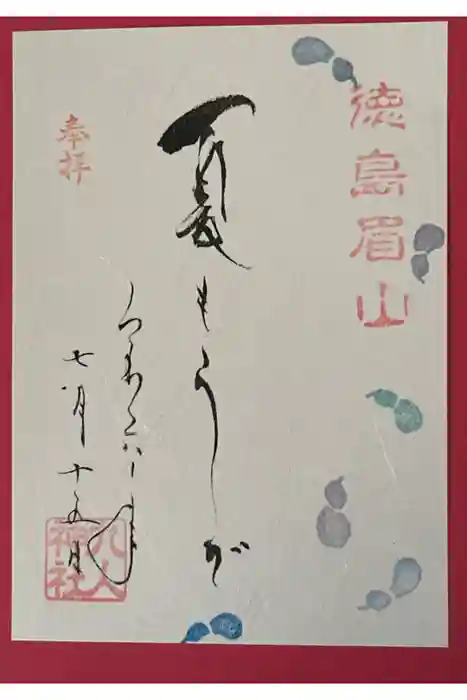 徳島眉山
夏もうで
奉拝
七月十五日
八人神社